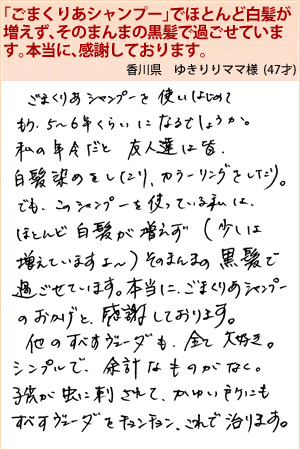 「ごまくりあシャンプー」でほとんど白髪が
増えず、そのまんまの黒髪で過ごせていま
す。本当に、感謝しております。
香川県　ゆきりりママ様 (47才)
ごまくりあシャンプーを使いはじめて
もう、5〜6年くらいになるでしょうか。
私の年令だと 友人達は皆、
白髪染めをしたり、カラーリングをしたり。
でも、このシャンプーを使っている私は、
ほとんど白髪が増えず (少しは
増えていますよ〜) そのまんまの黒髪で
過ごせています。本当に、ごまくりあシャンプー
のおかげと、感謝しております。
他のすべすヴェーダも、全て大好き。
シンプルで、余計なものがなく。
子供が虫に刺されて、かゆい時にも
すべすヴェーダをチョンチョン、これで治ります。